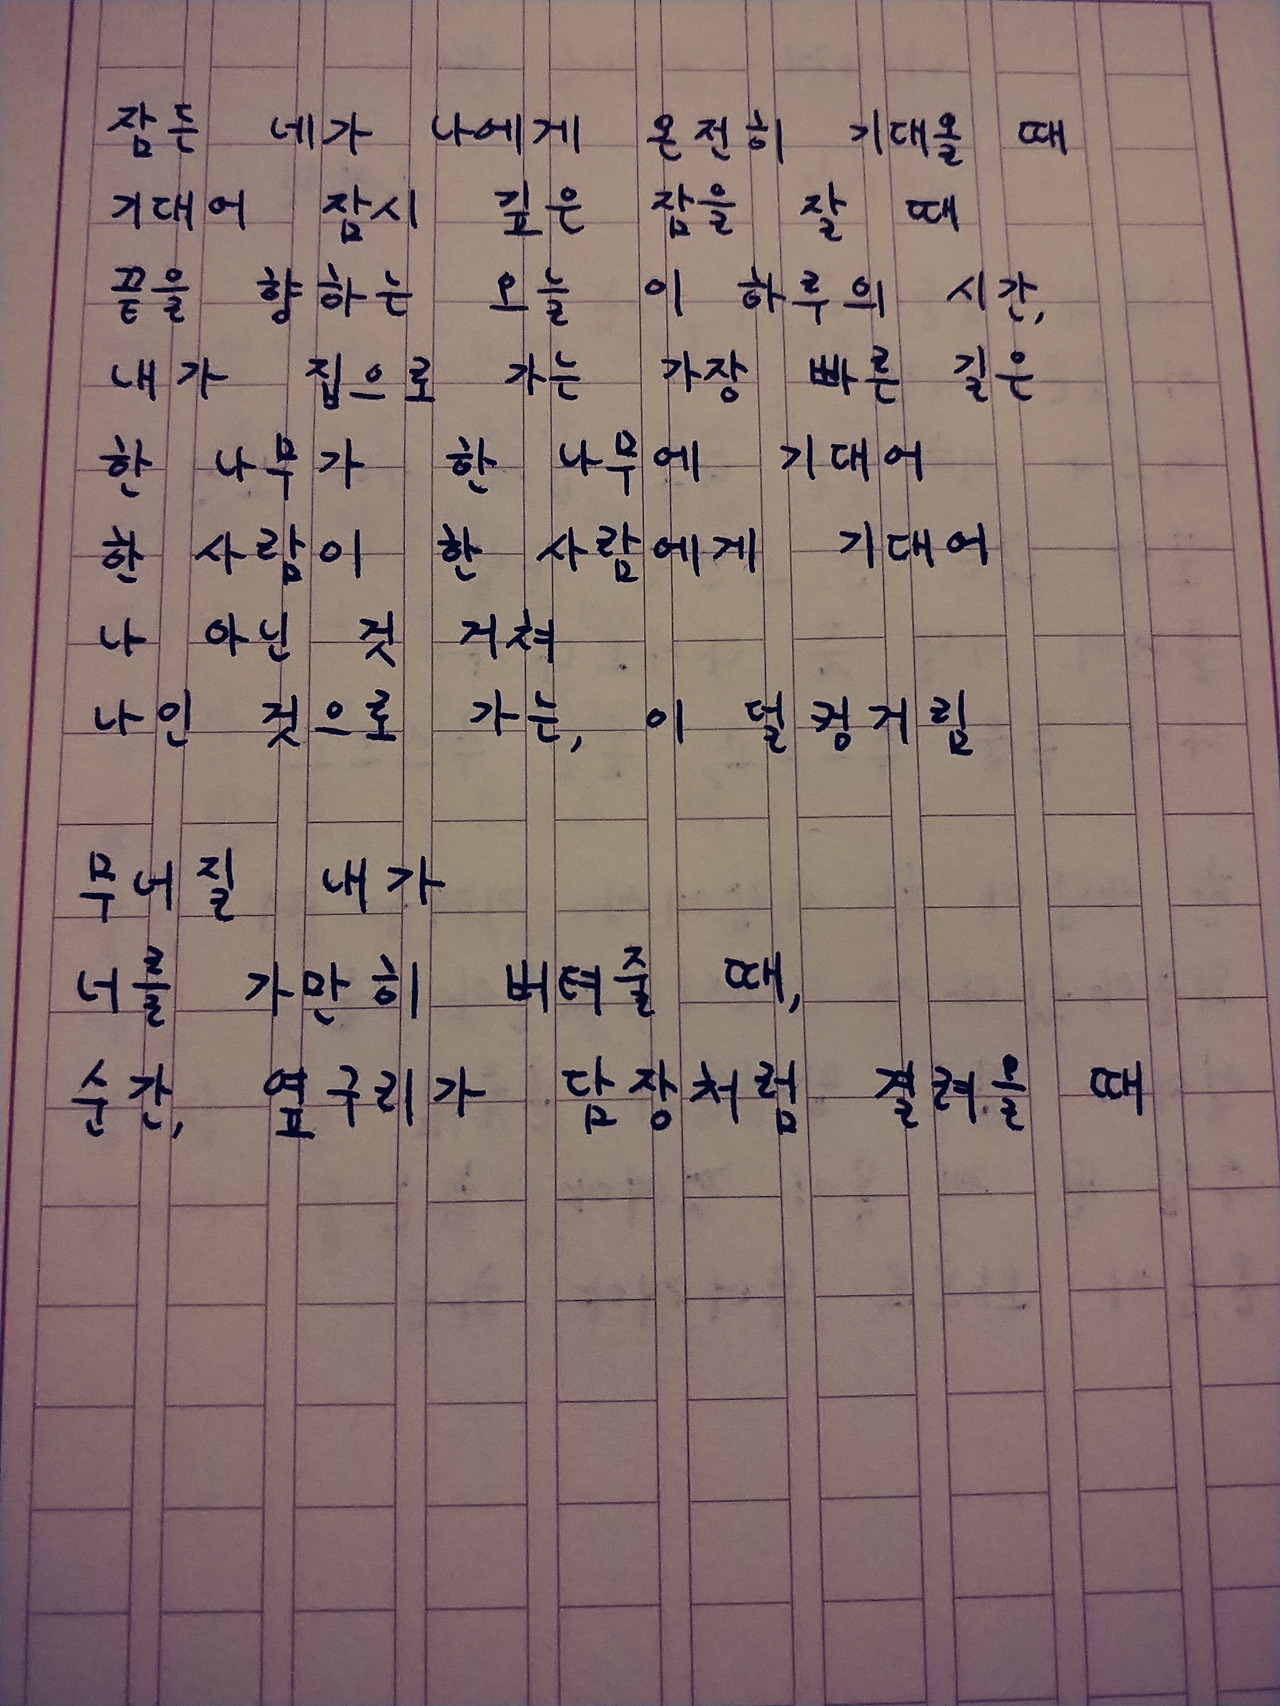 잠든 네가 나에게 온전히 기대올 때
기대어 잠시 깊은 잠을 잘 때
끝을 향하는 오늘 이 하루의 시간,
내가 집으로 가는 가장 빠른 길은
한 나무가 한 나무에 기대어
한 사람이 한 사람에게 기대어
나 아닌 것 거쳐
나인 것으로 가는, 이 덜컹거림
무너질 내가
너를 가만히 버텨줄 때,
순간, 옆구리가 담장처럼 결려올 때